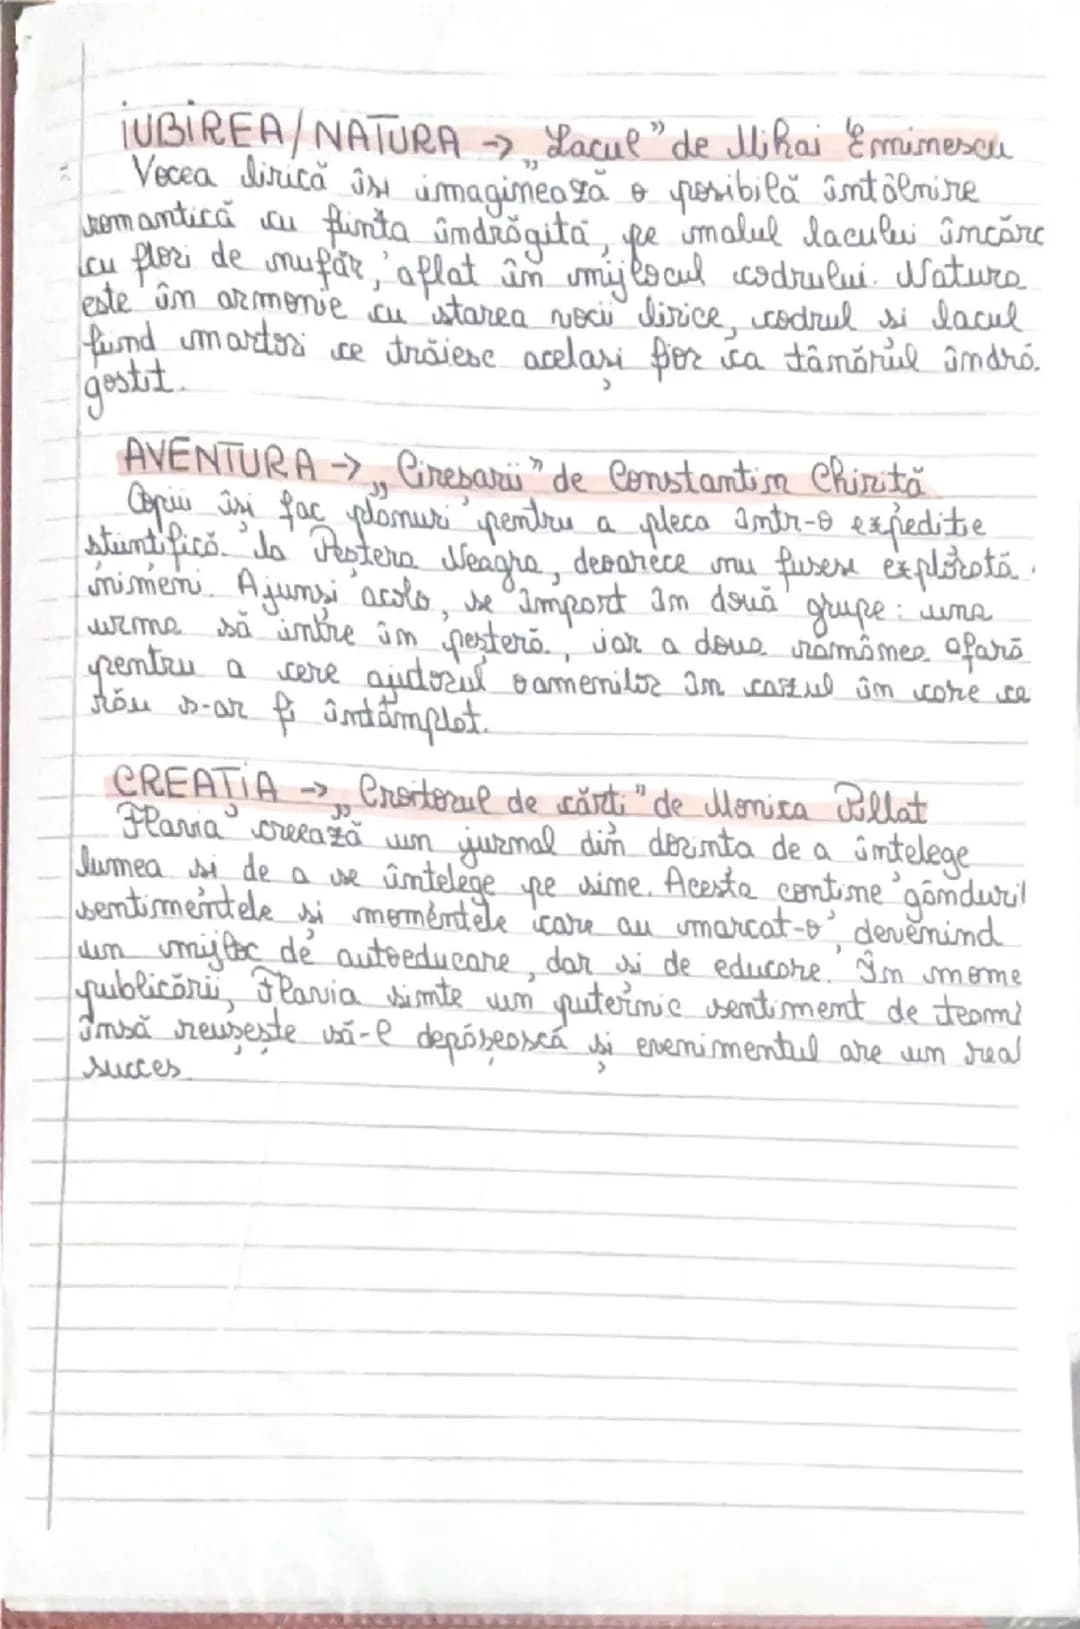 IUBIREA/NATURA → „Lacul” de Mihai Eminescu
Vocea lirică își imaginează o posibilă întâlnire
romantică cu ființa îndrăgită, pe malul lacului încărc
cu flori de nufăr, aflat în mijlocul codrului. Natura
este în armonie cu starea vocii lirice, codrul și lacul
fiind martori ce trăiesc același fior ca tânărul îndră
gostit.
AVENTURA → „Cireșarii” de Constantin Chiriță
Copiii își fac planuri pentru a pleca într-o expediție
științifică la Peștera Neagra, deoarece nu fusese explorată
nimeni. Ajunși acolo, se împart în două grupe: una
urma să intre în peșteră, iar a doua rămânea afară
pentru a cere ajutorul oamenilor în cazul în care ce
rău s-ar fi întâmplat.
CREAȚIA → „Croitorul de cărți” de Monica Pillat
Flavia creează un jurnal din dorința de a înțelege
lumea și de a se înțelege pe sine. Acesta conține gânduril
sentimentele și momentele care au marcat-o, devenind
un mijloc de autoeducare, dar și de educare. În mome
publicării, Flavia simte un puternic sentiment de teamă
însă reușește să-l depășească și evenimentul are un real
succes.